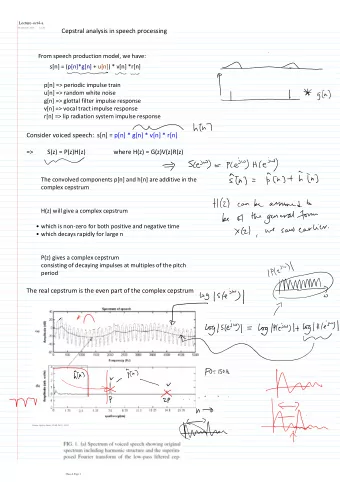 Lecture-ce14-a
Cepstral analysis in speech processing
From speech production model, we have:
s[n] = (p[n]*g[n] + u[n]) * v[n] *r[n]
p[n] => periodic impulse train
u[n] => random white noise
g[n] => glottal filter impulse response
v[n] => vocal tract impulse response
r[n] => lip radiation system impulse response
* g[n]
h[n]
Consider voiced speech: s[n] = p[n] * g[n] * v[n] * r[n]
=> S(z) = P(z)H(z) where H(z) = G(z)V(z)R(z)
⇒ S(e^jω) = P(e^jω) H(e^jω)
ŝ[n] = p̂[n] + ĥ[n]
The convolved components p[n] and h[n] are additive in the
complex cepstrum
H(z) can be assumed to
be of the general form
X(z), we saw earlier.
H(z) will give a complex cepstrum
• which is non-zero for both positive and negative time
• which decays rapidly for large n
P(z) gives a complex cepstrum
consisting of decaying impulses at multiples of the pitch
period
|P(e^jω)|
ω
The real cepstrum is the even part of the complex cepstrum
log |S(e^jω)|
log|S(e^jω)| = log|P(e^jω)| + log|H(e^jω)|
Spectrum of speech
(a)
frequency (Hz)
(b)
ĥ[n]
p̂[n]
P
2P
n →
FIG. 1. (a) Spectrum of voiced speech showing original
spectrum including harmonic structure and the superim-
posed Fourier transform of the low-pass filtered cep-